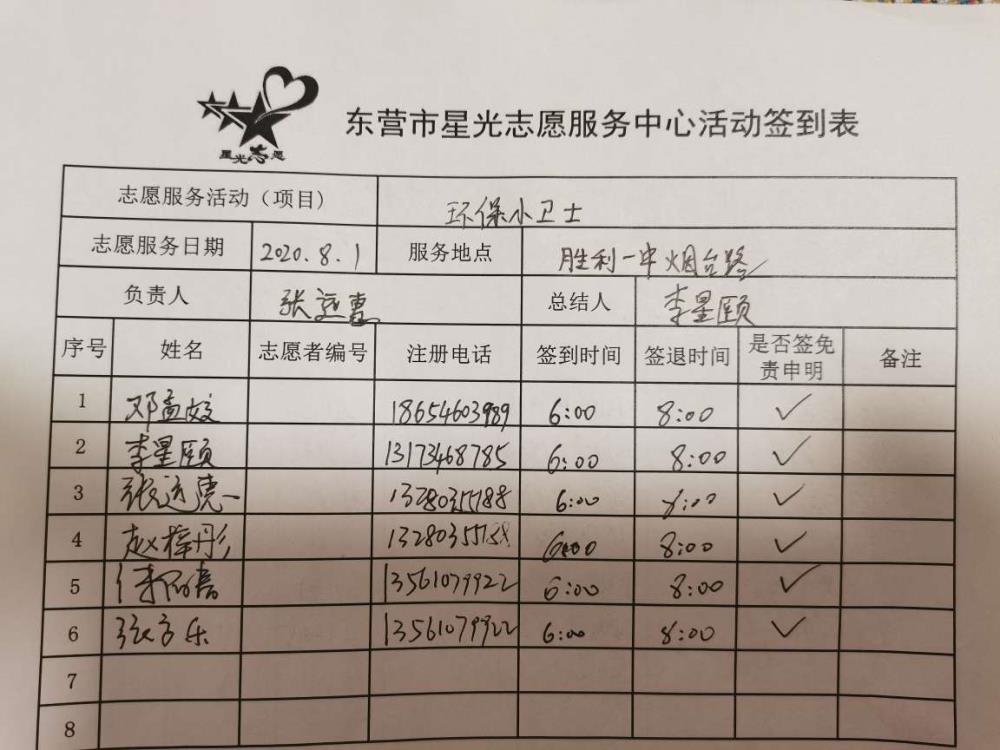 星光志愿
东营市星光志愿服务中心活动签到表
志愿服务活动（项目） 环保小卫士
志愿服务日期 2020.8.1 服务地点 胜利一中烟台路
负责人 张 总结人 李星颐
序号 姓名 志愿者编号 注册电话 签到时间 签退时间 是否签免责申明 备注
1 邓孟姣 18654603989 6:00 8:00 ✓
2 李星颐 13173468785 6:00 8:00 ✓
3 张 13280355188 6:00 8:00 ✓
4 赵梓彤 6:00 8:00 ✓
5 13561079922 6:00 8:00 ✓
6 张 乐 13561079922 6:00 8:00 ✓
7
8